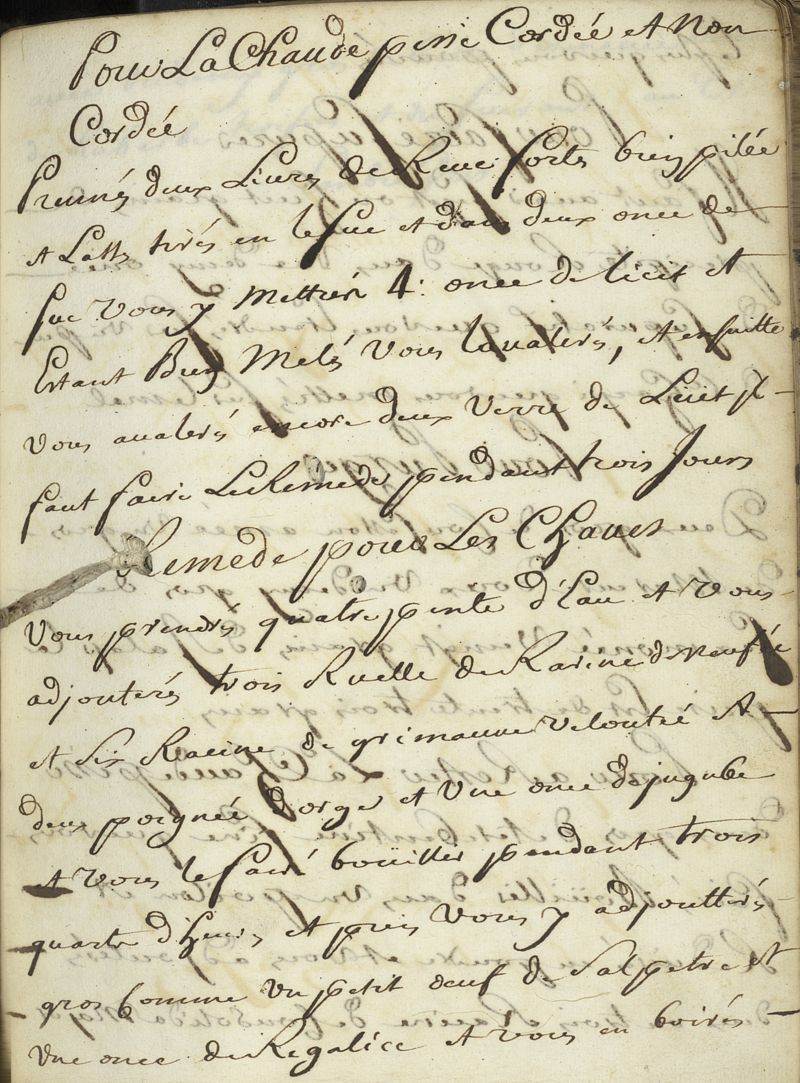 Pour La Chaude pisse Cordéé et Non
Cordéé
Prennés deux Livres de Rüe forte bien pilée
et Latts tirés en le suc et dans deux once de
suc vous y Mettrés 4: once de licit et
Estant Bien Melés vous lavalerés, et ensuitte
vous avalerés encore deux verre de Leict Jl
faut faire Le Remede pendant trois Jours
Remede pour Les Chaues
vous prendrés quatre pinte d'Eau et vous
adjouterés trois Ruelle de Racine de
et six Racine de grimauve veloutée et
deux poignéé d'orge et une once de jujube
et vous le fairé boüillir pendant trois
quarts d'heure et puis vous y adjoutterés
gros Comme un petit oeuf de salpetre et
vne once de Regalice et vous en boirés